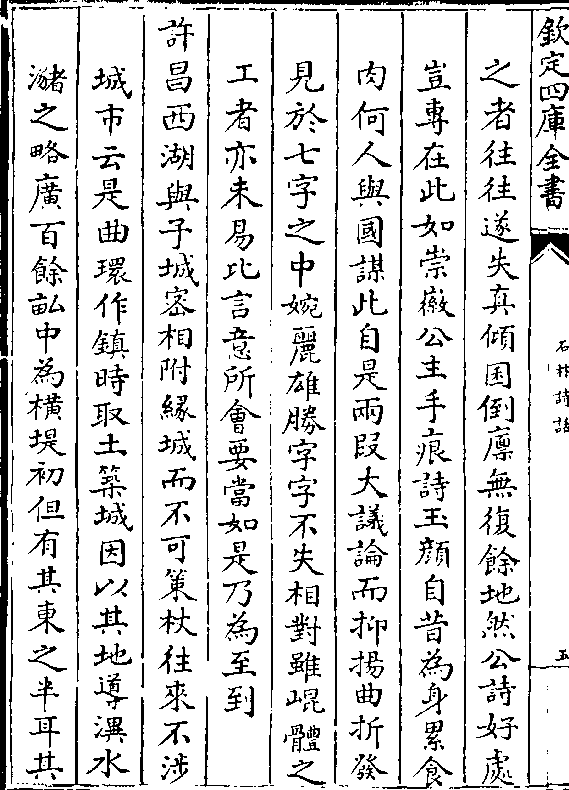 欽定四庫全書
石林詩話
五
之者往往遂失真傾囷倒廪無復餘地然公詩好處
豈專在此如崇徽公主手痕詩玉顔自昔為身累食
肉何人與國謀此自是兩段大議論而抑揚曲折發
見於七字之中婉麗雄勝字字不失相對雖崐體之
工者亦未易比言意所會要當如是乃為至到
許昌西湖與子城宻相附緣城而不可策杖往來不涉
城市云是曲環作鎮時取土築城因以其地導潩水
瀦之略廣百餘畝中為横堤初但有其東之半耳其